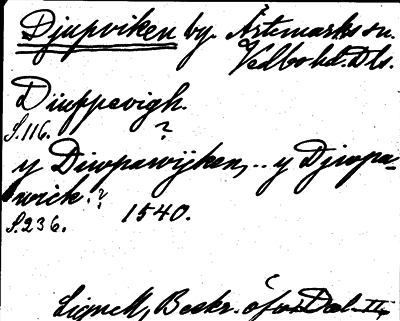 Djupviken by. Ärtemarks sn.
Vedbo hd. Dls.
Diuppevigh.
S.116. ?
y Diwpawijken, .. y Djwpa-
wick. ?
S.236. 1540.
Lignell, Beskr. öfver Dal. II